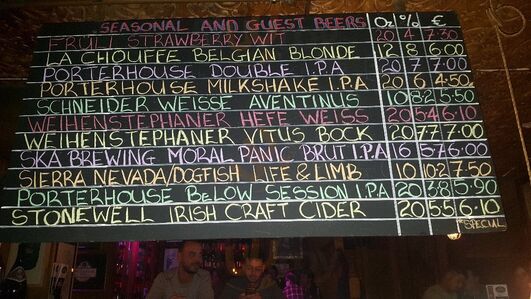 SEASONAL AND GUEST BEERS Oz % €
FRULI STRAWBERRY WIT 20 4 7·30
LA CHOUFFE BELGIAN BLONDE 12 8 6·00
PORTERHOUSE DOUBLE I.P.A 20 7 7·00
PORTERHOUSE MILKSHAKE I.P.A 20 6 4·50
SCHNEIDER WEISSE AVENTINUS 10 8.2 5·50
WEIHENSTEPHANER HEFE WEISS 20 5.4 6·10
WEIHENSTEPHANER VITUS BOCK 20 7.7 7·00
SKA BREWING MORAL PANIC BRUT I.P.A 16 5.7 6·00
SIERRA NEVADA/DOGFISH LIFE & LIMB 10 10.2 7·50
PORTERHOUSE BELOW SESSION I.PA 20 3.8 5·90
STONEWELL IRISH CRAFT CIDER 20 5.5 6·10
*SPECIAL